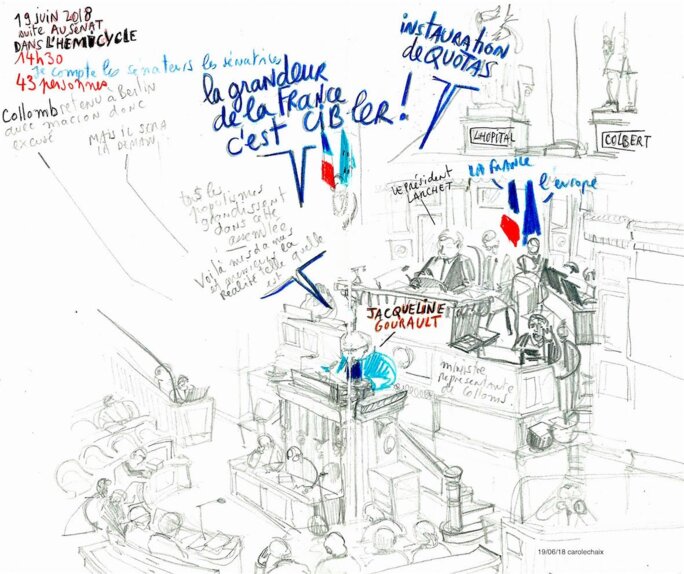 19 juin 2018
suite AU SENAT
DANS L'HEMICYCLE
14h30
Je compte les sénateurs les sénatrices
43 personnes
Collomb retenu à Berlin
avec macron donc
excusé
MAIS IL SERA
LA DEMAIN.
la grandeur
de la FRANCE
c'est CIBLER !
INSTAURATION
de QUOTAS
L'HOPITAL
COLBERT
LA FRANCE
l'europe
LE Président
LARCHET
grandissent
dans cette
assemblée
Voilà mesdames
et messieurs la
Réalité telle quelle
est
JACQUELINE
GOURAULT
ministre
représentante
de Collomb.
19/06/18 carolechaix